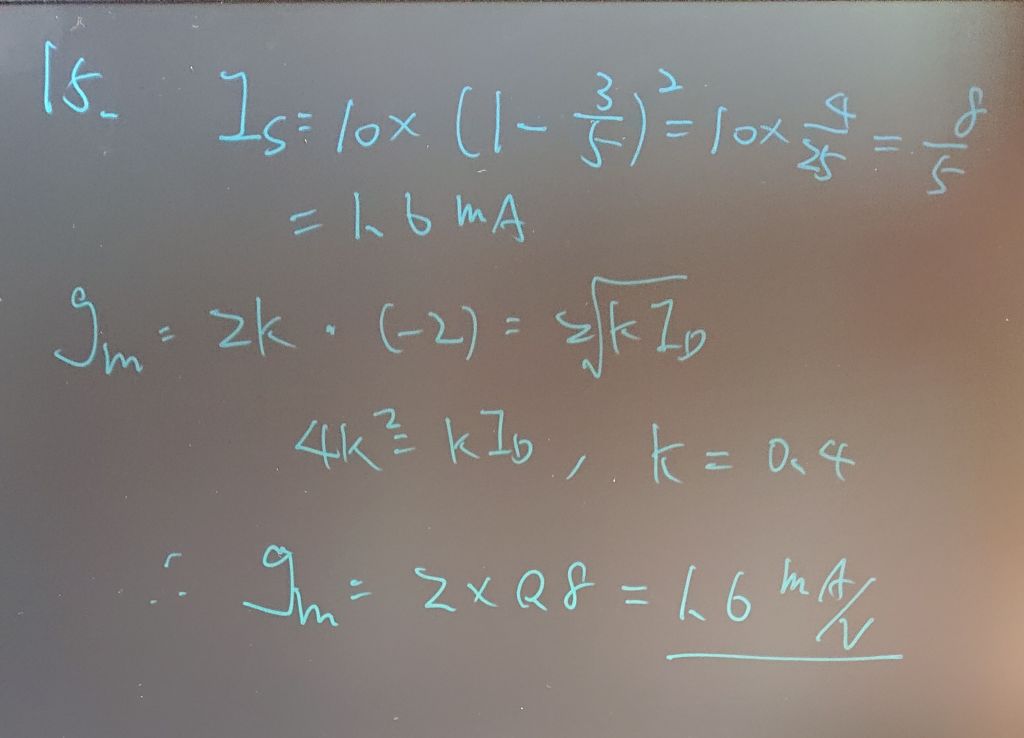 15. I_S = 10 × (1 - 3/5)² = 10 × 4/25 = 8/5
= 1.6 mA
g_m = 2k · (-2) = 2√(k I_D)
4k² = k I_D, k = 0.4
∴ g_m = 2 × 0.8 = 1.6 mA/V